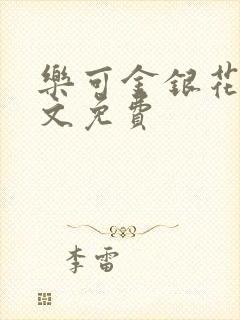 樂可金銀花
文免費
李雷